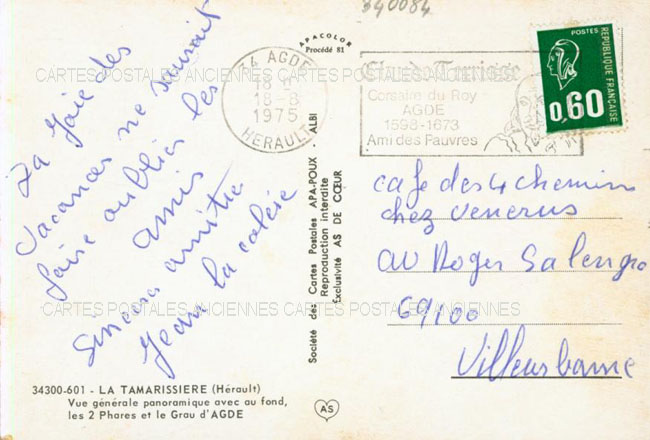 340084
APACOLOR
Procédé 81
POSTES
REPUBLIQUE FRANÇAISE
0,60
34 AGDE
18 -8
1975
HERAULT
Claude Terrisse
Corsaire du Roy
AGDE
1598-1673
Ami des Pauvres
CARTES POSTALES ANCIENNES CARTES POSTALES ANCIENNES
La joie des
vacances ne saurait
faire oublier les
amis
Sincère amitié
Jean la colère
Société des Cartes Postales APA-POUX - ALBI
Reproduction interdite
Exclusivité AS DE CŒUR
cafe des 4 chemins
chez venerus
av Roger Salengro
69100
Villeurbanne
CARTES POSTALES ANCIENNES CARTES POSTALES ANCIENNES
34300-601 - LA TAMARISSIERE (Hérault)
Vue générale panoramique avec au fond,
les 2 Phares et le Grau d'AGDE
AS